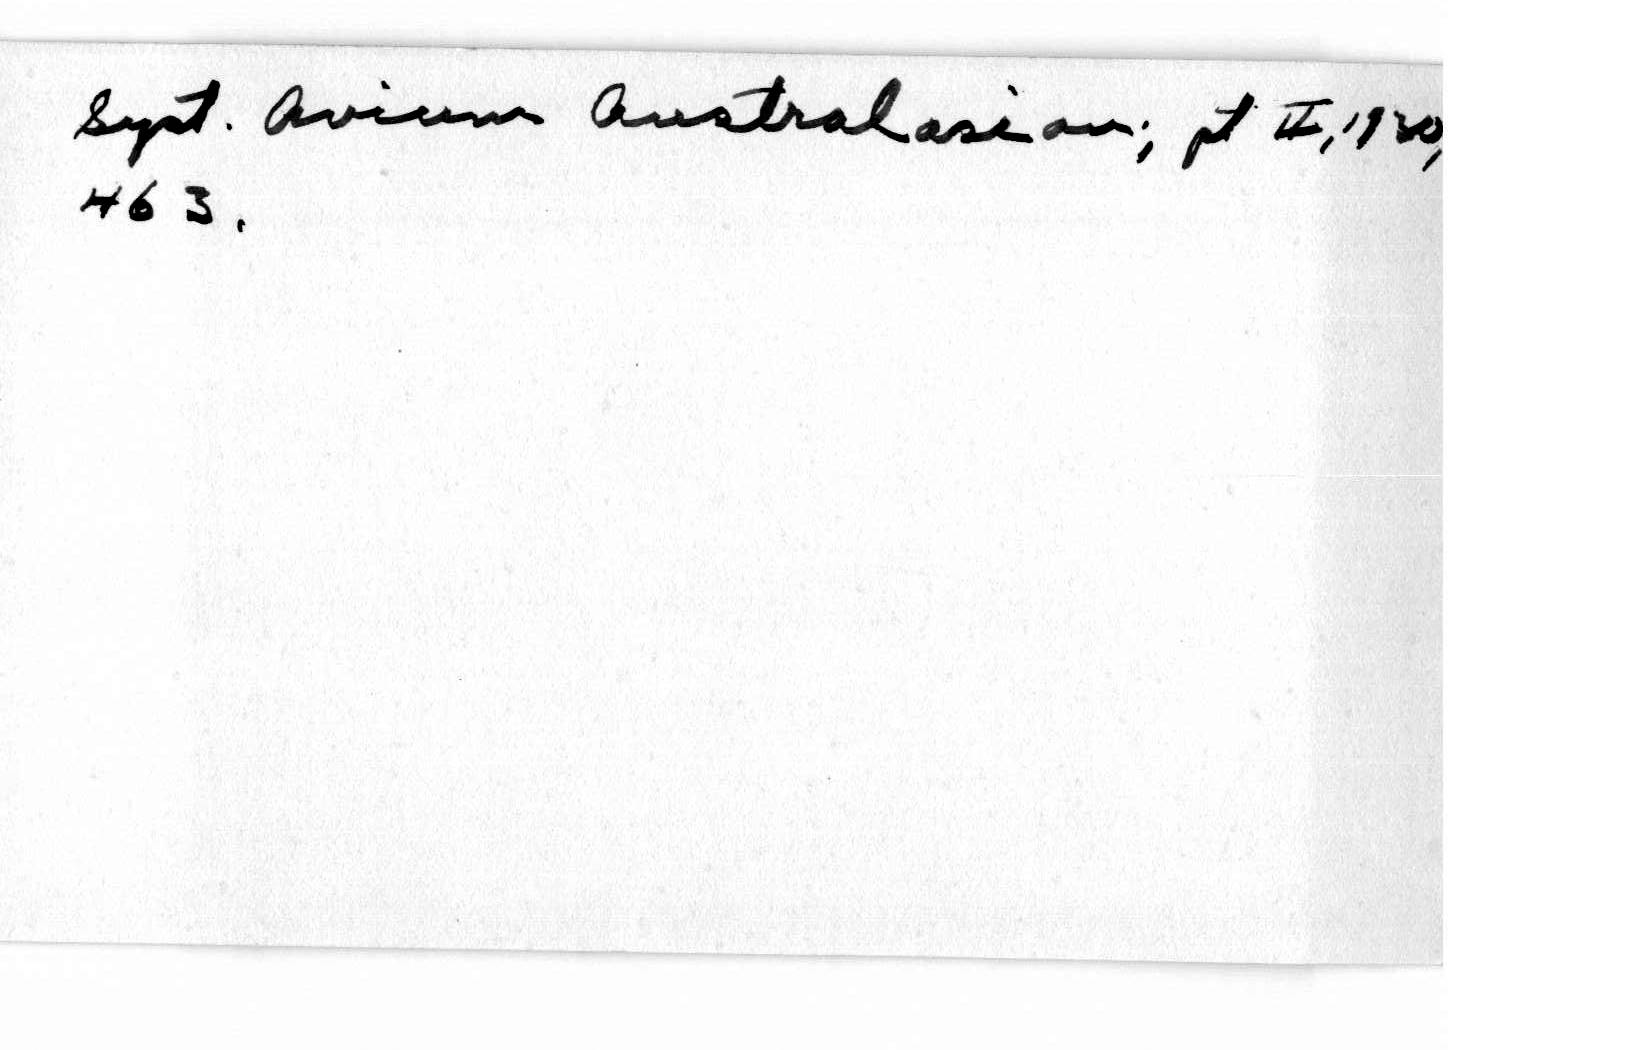 Syst. Avium Australasian; pt II, 1930,
463.